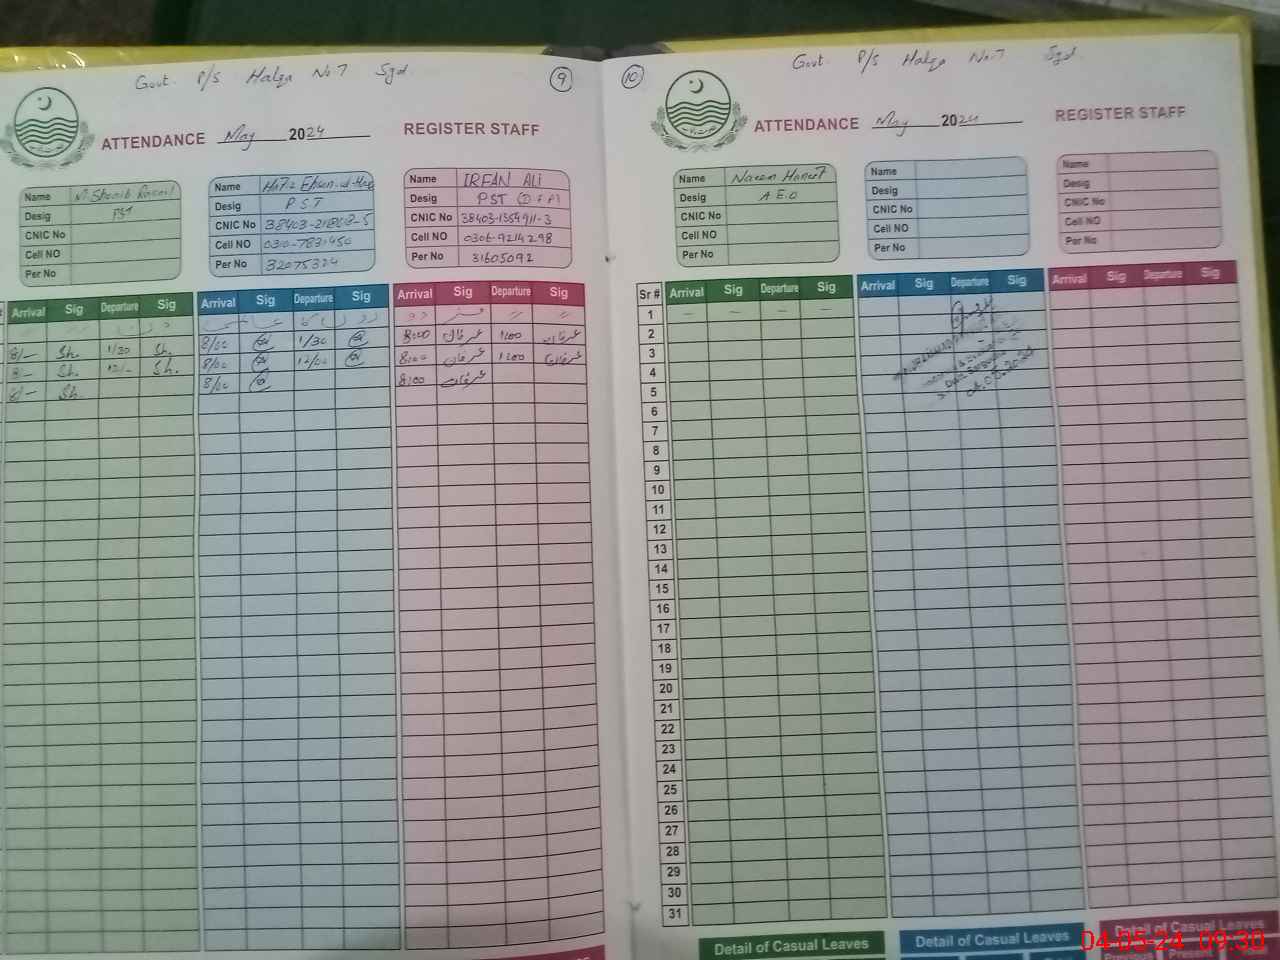 Govt. P/S Halqa No.7 Sgd.
9
ATTENDANCE May 2024 REGISTER STAFF
Name M. Shoaib
Desig PST
CNIC No
Cell NO
Per No
Name Hafiz
Desig PST
CNIC No
Cell NO 0310-7831450
Per No 32075324
Name IRFAN ALi
Desig PST
CNIC No 38403-1354911-3
Cell NO 0306-9214298
Per No 31605092
Arrival Sig Departure Sig Arrival Sig Departure Sig Arrival Sig Departure Sig
8/- Sh. 1/30 Sh. 8/00 1/30 8:00 عرفان 1:00 عرفان
8- Sh. 12/- Sh. 8/00 12/00 8:00 عرفان 1200 عرفان
8/- Sh. 8/00 8:00 عرفان
10
Govt. P/S Halqa No.7 Sgd.
ATTENDANCE May 2024 REGISTER STAFF
Name Naeem Haneef
Desig A.E.O
CNIC No
Cell NO
Per No
Name
Desig
CNIC No
Cell NO
Per No
Name
Desig
CNIC No
Cell NO
Per No
Sr # Arrival Sig Departure Sig Arrival Sig Departure Sig Arrival Sig Departure Sig
1 - - - -
2
3
4
5
6
7
8
9
10
11
12
13
14
15
16
17
18
19
20
21
22
23
24
25
26
27
28
29
30
31
04.05.2024
Detail of Casual Leaves Detail of Casual Leaves Detail of Casual Leaves
Previous Present
04-05-24 09:30